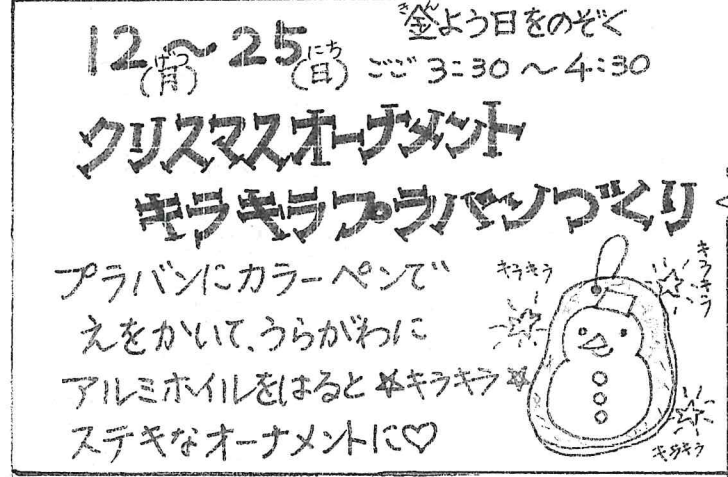 金よう日をのぞく
きん
12(月)〜25(日) ごご3:30〜4:30
げつ にち
クリスマスオーナメント
キラキラプラバンづくり
プラバンにカラーペンで
えをかいて、うらがわに
アルミホイルをはると★キラキラ★
ステキなオーナメントに♡
キラキラ
キラキラ
キラキラ